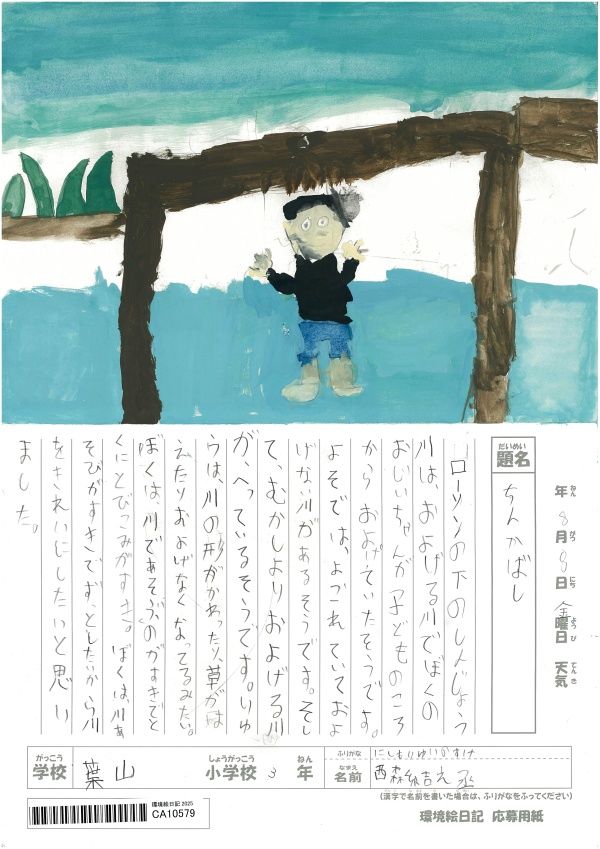 年ねん 8月がつ 8日にち 金曜日ようび 天気てんき
題名だいめい
ちんかばし
ローソンの下のしんじょう
川は、およげる川でぼくの
おじいちゃんが子どものころ
からおよげていたそうです。
よそでは、よごれていておよ
げない川があるそうです。そし
て、むかしよりおよげる川
が、へっているそうです。りゆ
うは、川の形がかわったり、草がは
えたりおよげなくなってるみたい。
ぼくは、川であそぶのがすきでと
くにとびこみがすき。ぼくは、川あ
そびがすきでずっとしたいから川
をきれいにしたいと思い
ました。
がっこう しょうがっこう ねん
学校 葉山 小学校 3 年
ふりがな にしもりゆいのすけ
なまえ
名前 西森結之丞
(漢字で名前を書いた場合は、ふりがなをふってください)
環境絵日記 2025
CA10579
環境絵日記 応募用紙